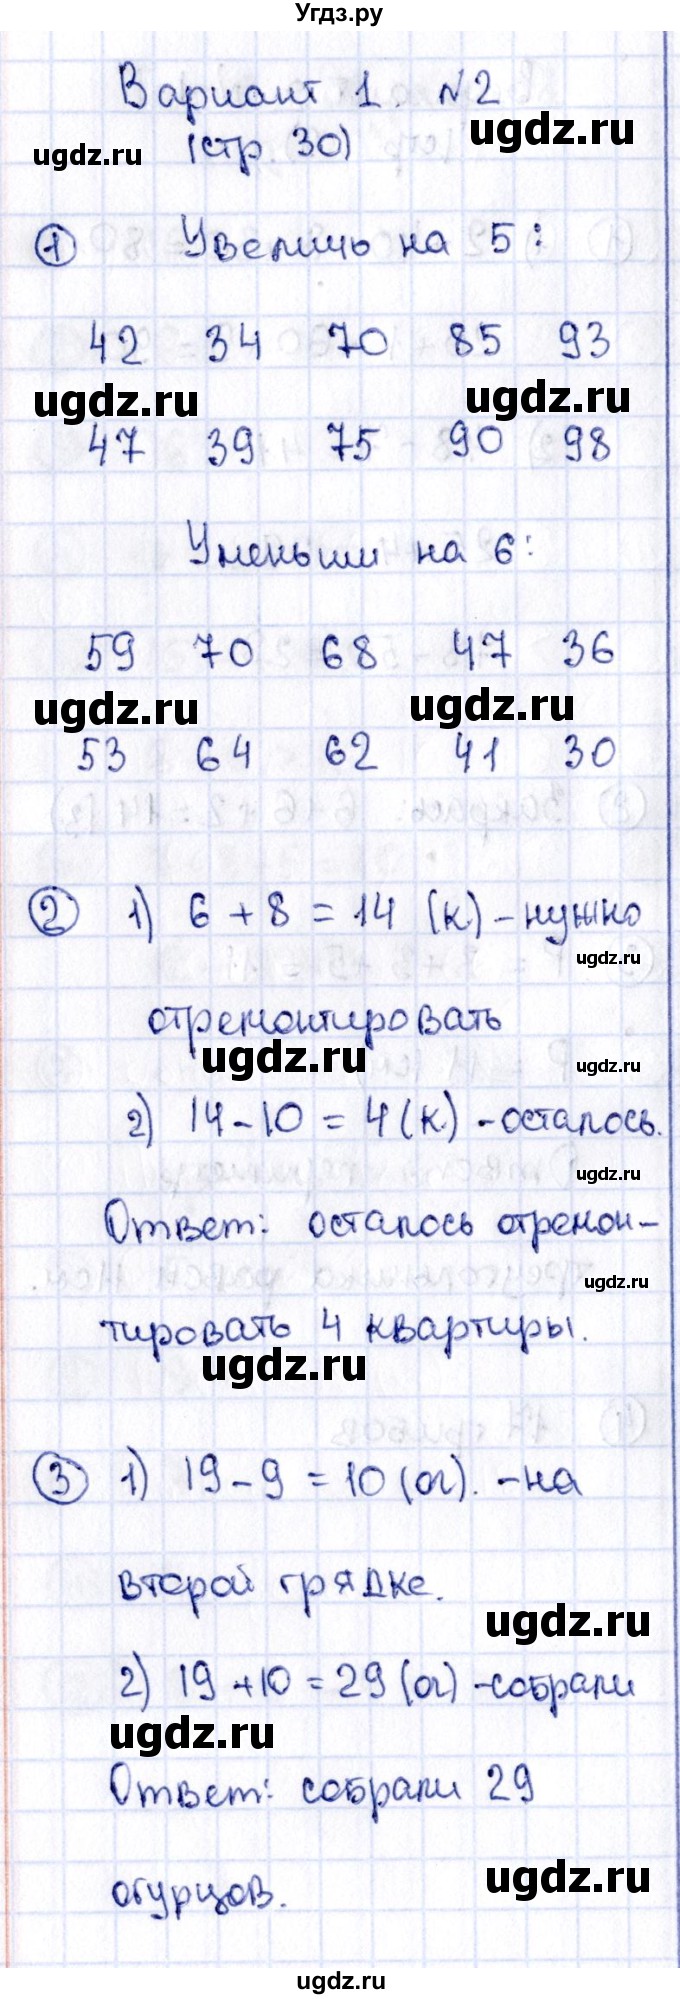 Угдз.ру
Вариант 1. №2
ugdz.ru
(стр 30)
ugdz.ru
① Увеличь на 5:
42 34 70 85 93
ugdz.ru ugdz.ru
47 39 75 90 98
Уменьши на 6:
59 70 68 47 36
ugdz.ru ugdz.ru
53 64 62 41 30
② 1) 6 + 8 = 14 (к) - нужно
ugdz.ru
отремонтировать
ugdz.ru ugdz.ru
2) 14 - 10 = 4 (к) - осталось.
ugdz.ru
Ответ: осталось отремон-
ugdz.ru
тировать 4 квартиры.
ugdz.ru
③ 1) 19 - 9 = 10 (ог). - на
второй грядке.
ugdz.ru
2) 19 + 10 = 29 (ог) - собрали
ugdz.ru
Ответ: собрали 29
огурцов.
ugdz.ru
ugdz.ru